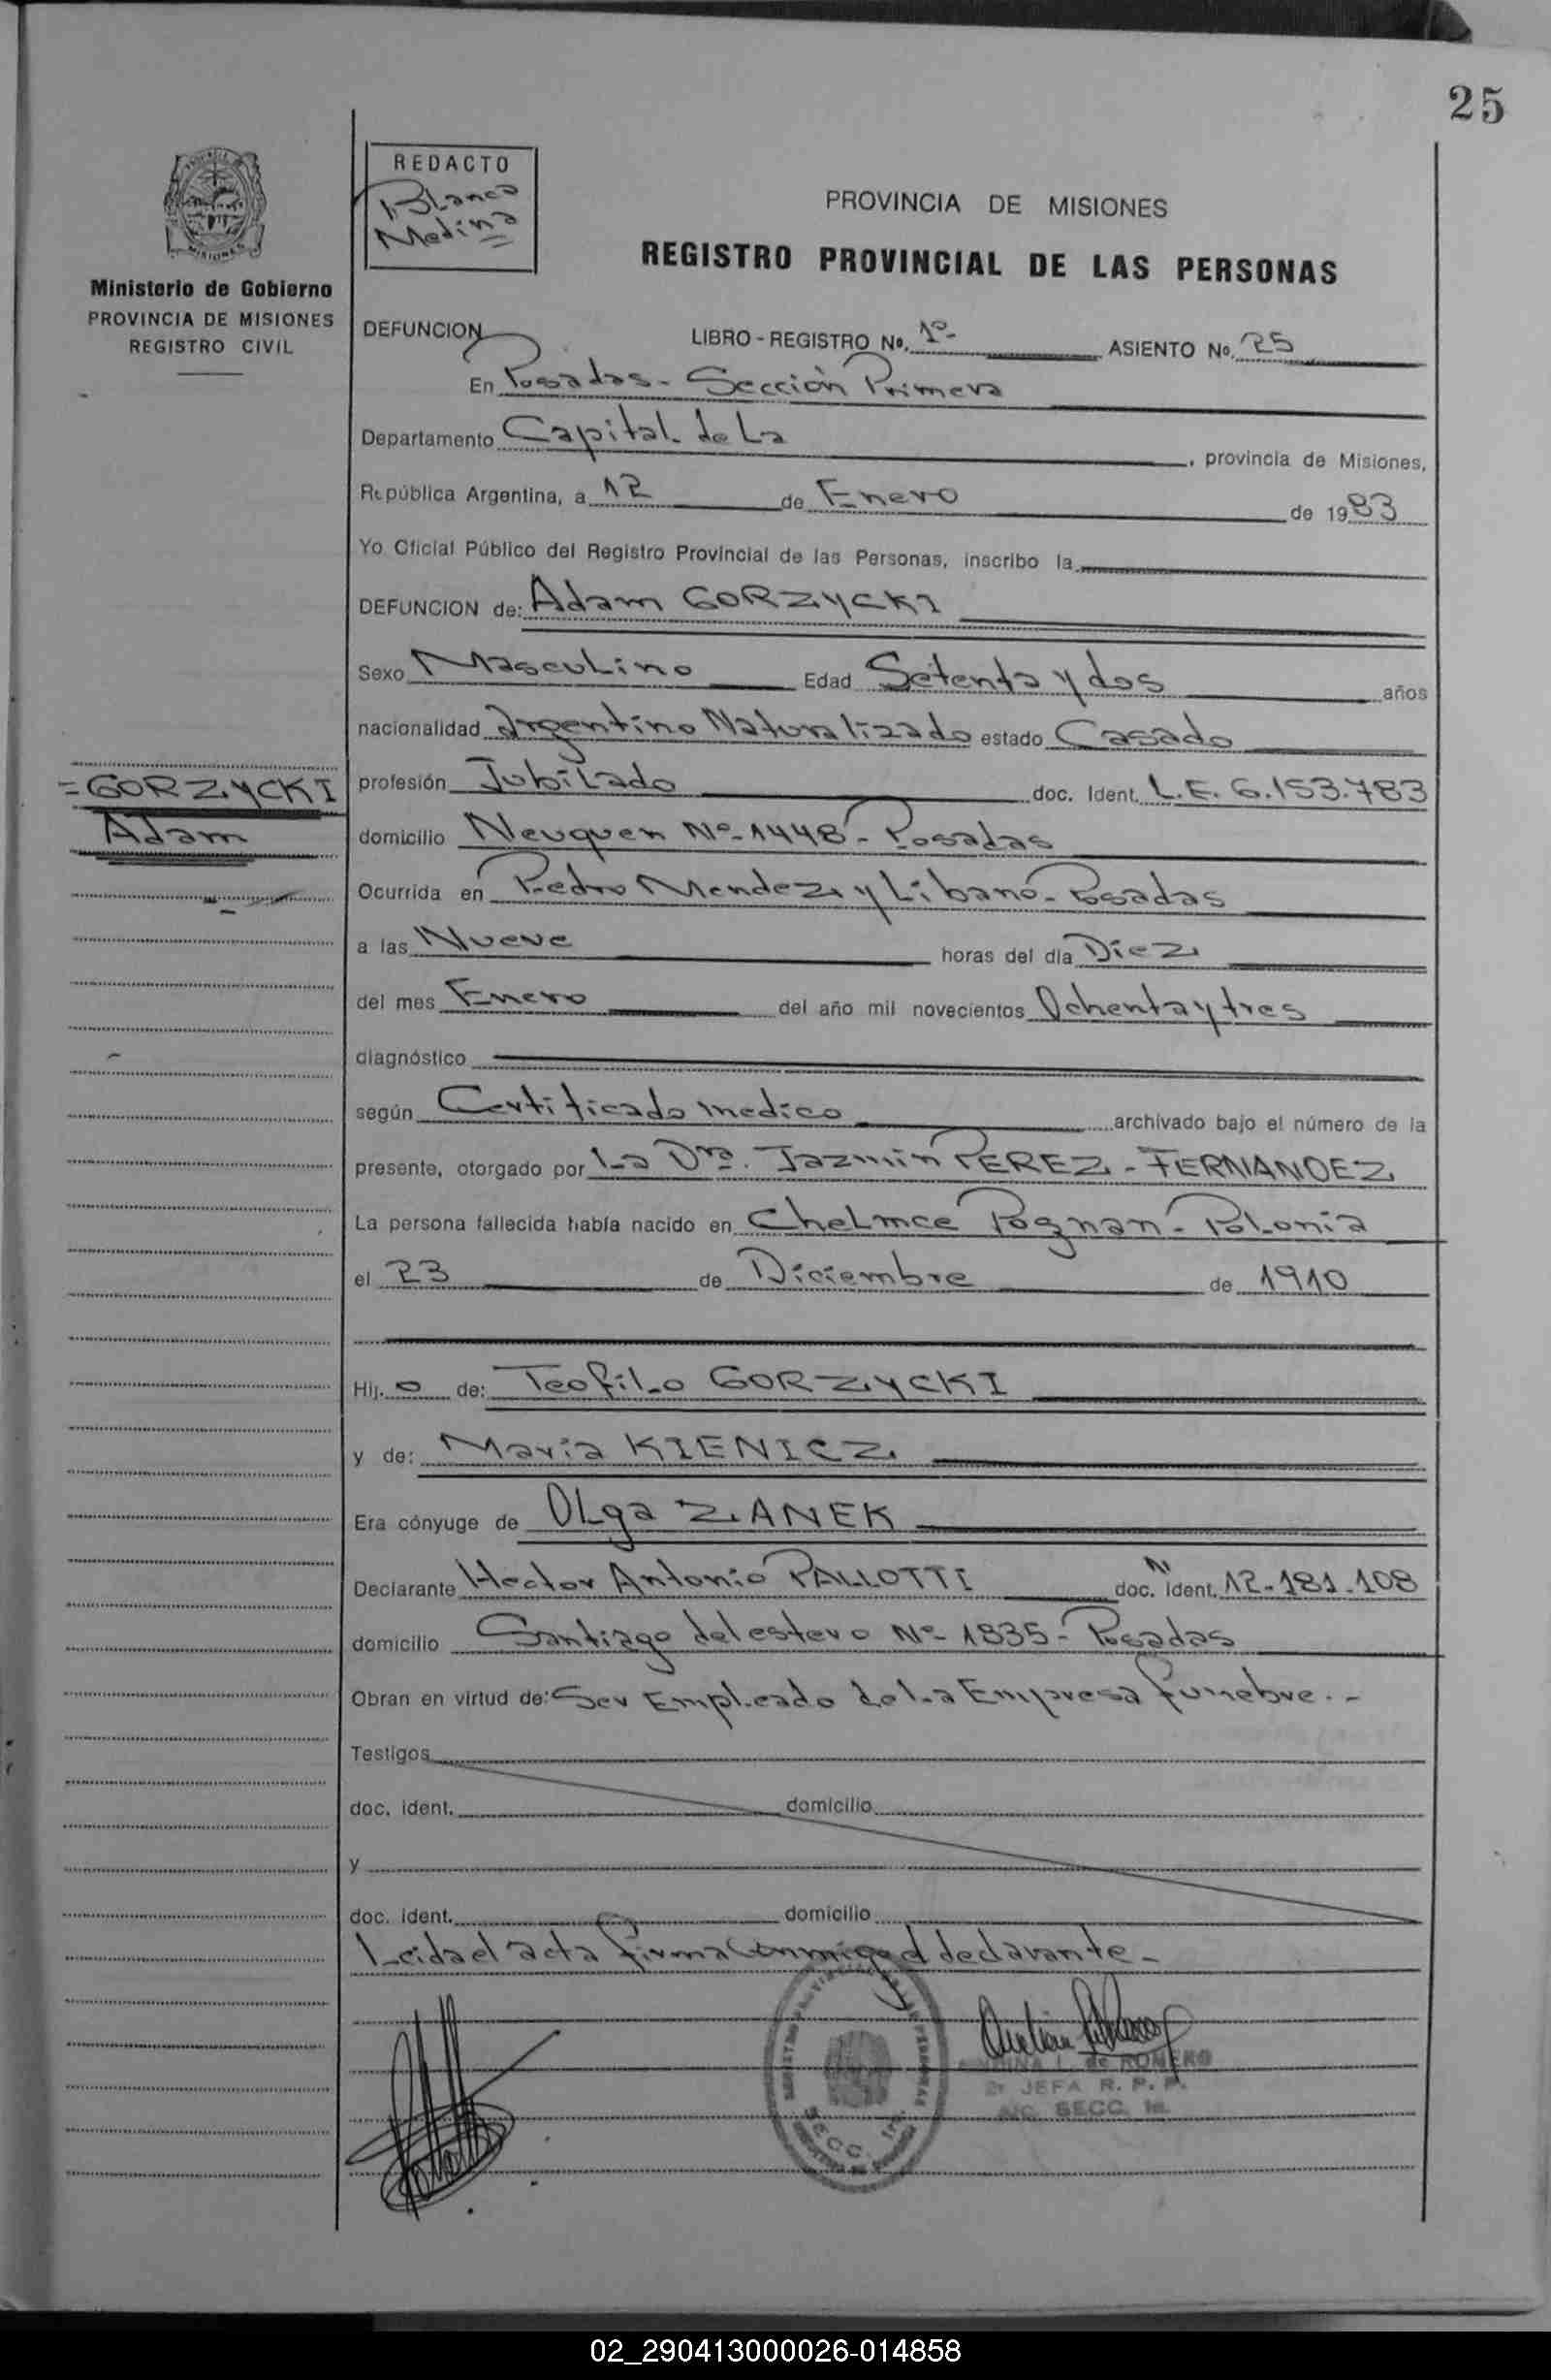 25
REDACTO
Blanca
Medina
Ministerio de Gobierno
PROVINCIA DE MISIONES
REGISTRO CIVIL
PROVINCIA DE MISIONES
REGISTRO PROVINCIAL DE LAS PERSONAS
DEFUNCION LIBRO - REGISTRO Nº. 1º- ASIENTO Nº. 25
En Posadas - Sección Primera
Departamento Capital de La , provincia de Misiones,
República Argentina, a 12 de Enero de 1983
Yo Oficial Público del Registro Provincial de las Personas, inscribo la
DEFUNCION de: Adam GORZYCKI
Sexo Masculino Edad Setenta y dos años
nacionalidad Argentino Naturalizado estado Casado
=GORZYCKI
Adam
profesión Jubilado doc. Ident. L.E. 6.153.783
domicilio Neuquen Nº-1448- Posadas
Ocurrida en Pedro Mendez y Libano - Posadas
a las Nueve horas del día Diez
del mes Enero del año mil novecientos Ochenta y tres
diagnóstico
según Certificado medico archivado bajo el número de la
presente, otorgado por La Dra. Jazmin PEREZ - FERNANDEZ
La persona fallecida había nacido en Chelmce Poznan - Polonia
el 23 de Diciembre de 1910
Hij. o de: Teofilo GORZYCKI
y de: Maria KIENICZ
Era cónyuge de Olga ZIANEK
Declarante Hector Antonio PALLOTTI doc. N ident. 12-181-108
domicilio Santiago del estero Nº- 1835- Posadas
Obran en virtud de: Ser Empleado de La Empresa funebre.-
Testigos
doc. ident. domicilio
y
doc. ident. domicilio
Leida el acta firma Conmigo el declarante-
L. de ROMERO
JEFA R. P. P.
A/C. SECC. 1a.
SECC. 1ra.
02_290413000026-014858